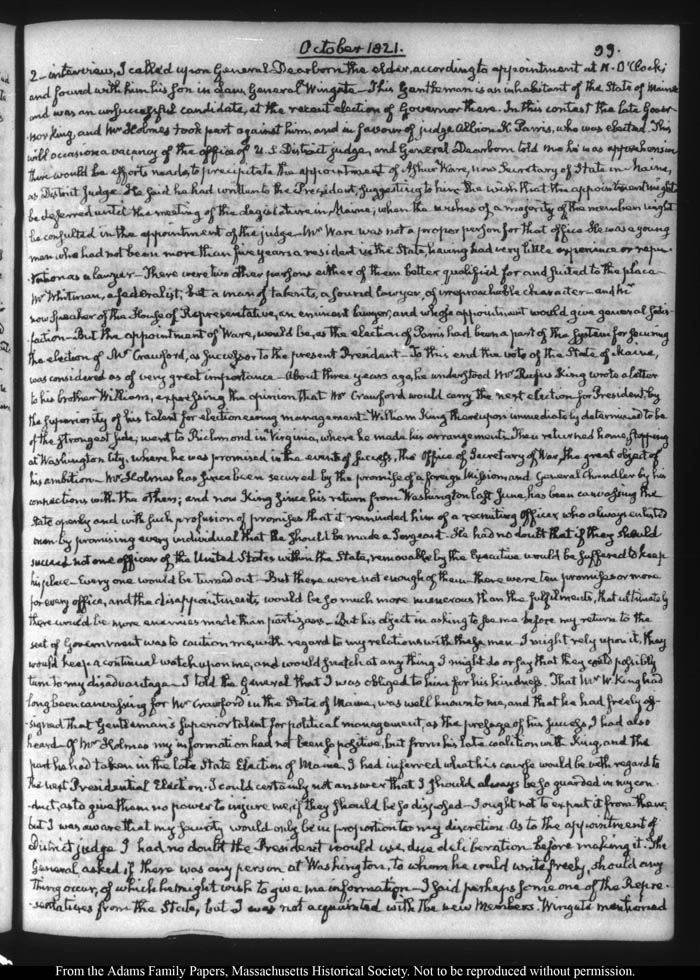 October 1821.
99.
2- interview, I called upon General Dearborn the elder, according to appointment at 11. O'Clock;
and found with him his Son in Law, General Wingate- This Gentleman is an inhabitant of the State of Maine
and was an unsuccessful candidate, at the recent election of Governor there. In this contest the late Gover-
nor King, and Mr Holmes took part against him, and in favour of judge Albion K. Parris, who was elected. This
will occasion a vacancy of the office of U.S. District judge, and General Dearborn told me he was apprehensive
there would be efforts made to precipitate the appointment of Ashur Ware, now Secretary of State in Maine,
as District Judge. He said he had written to the President, suggesting to him the wish that the appointment might
be deferred until the meeting of the Legislature in Maine; when the wishes of a majority of the members might
be consulted in the appointment of the judge- Mr Ware was not a proper person for that office. He was a young
man who had not been more than five years a resident in the State, having had very little experience or repu-
tation as a lawyer- There were two other persons either of them better qualified for and suited to the place-
Mr Whitman, a federalist, but a man of talents, a sound lawyer, of irreproachable character- and the
now Speaker of the House of Representative, an eminent lawyer, and whose appointment would give general satis-
faction- But the appointment of Ware, would be, as the election of Parris had been a part of the System for securing
the election of Mr Crawford, as Successor to the present President- To this end the vote of the State of Maine,
was considered as of very great importance- About three years ago, he understood Mr Rufus King wrote a letter
to his brother William, expressing the opinion that Mr Crawford would carry the next election for President, by
the superiority of his talent for electioneering management- William King thereupon immediately determined to be
of the strongest side, went to Richmond in Virginia, where he made his arrangements. Then returned home, stopping
at Washington City, where he was promised in the event of success, the Office of Secretary of War, the great object of
his ambition- Mr Holmes has since been secured by the promise of a foreign Mission, and General Chandler by his
connections with the others; and now King since his return from Washington last June, has been canvassing the
State openly and with such profusion of promises that it reminded him of a recruiting Officer, who always enlisted
men by promising every individual that he should be made a Sergeant. He had no doubt that if they should
succeed not one officer of the United States within the State, removable by the Executive would be suffered to keep
his place- Every one would be turned out- But there were not enough of them- there were ten promises or more
for every office, and the disappointments would be so much more numerous than the fulfilments, that ultimately
there would be more enemies made than partizans- But his object in asking to see me before my return to the
seat of Government was to caution me, with regard to my relations with these men- I might rely upon it, they
would keep a continual watch upon me, and would snatch at any thing I might do or say that they could possibly
turn to my disadvantage- I told the General that I was obliged to him for his kindness. That Mr W. King had
long been canvassing for Mr Crawford in the State of Maine, was well known to me, and that he had freely as-
signed that Gentleman's superior talent for political management, as the presage of his success, I had also
heard- Of Mr Holmes my information had not been so positive, but from his late coalition with King, and the
part he had taken in the late State Election of Maine, I had inferred what his course would be with regard to
the next Presidential Election. I could certainly not answer that I should always be so guarded in my con-
duct, as to give them no power to injure me, if they should be so disposed- I ought not to expect it from them,
but I was aware that my security would only be in proportion to my discretion. As to the appointment of
District judge I had no doubt the President would use due deliberation before making it. The
General asked if there was any person at Washington, to whom he could write freely, should any
thing occur, of which he might wish to give me information- I said perhaps some one of the Repre-
sentatives from the State, but I was not acquainted with the new Members. Wingate mentioned
From the Adams Family Papers, Massachusetts Historical Society. Not to be reproduced without permission.